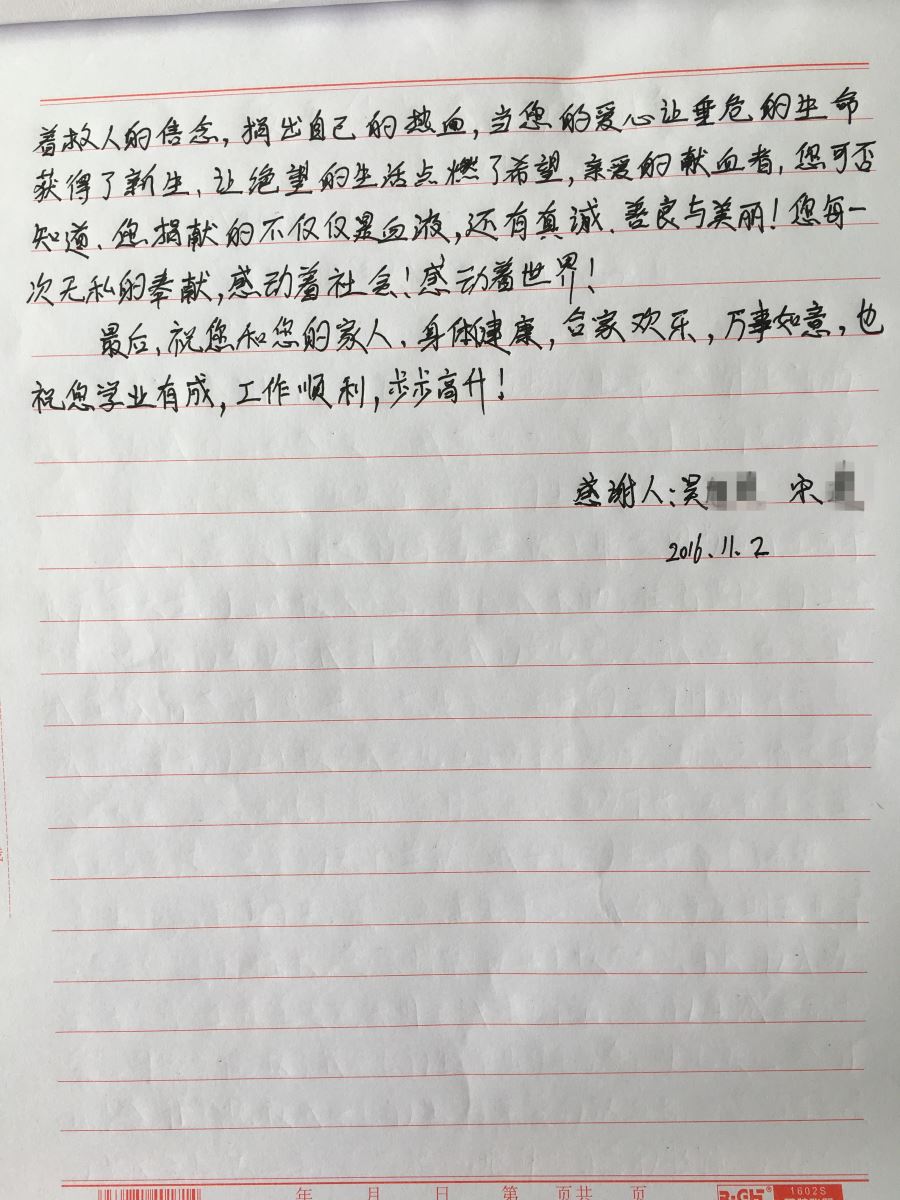 着救人的信念，捐出自己的热血，当您的爱心让垂危的生命
获得了新生、让绝望的生活点燃了希望，亲爱的献血者，您可否
知道、您捐献的不仅仅是血液，还有真诚、善良与美丽！您每一
次无私的奉献，感动着社会！感动着世界！
最后、祝您和您的家人、身体健康，合家欢乐，万事如意，也
祝您学业有成，工作顺利，步步高升！
感谢人：吴 宋
2016.11.2
年 月 日 第 页共 页
1602S